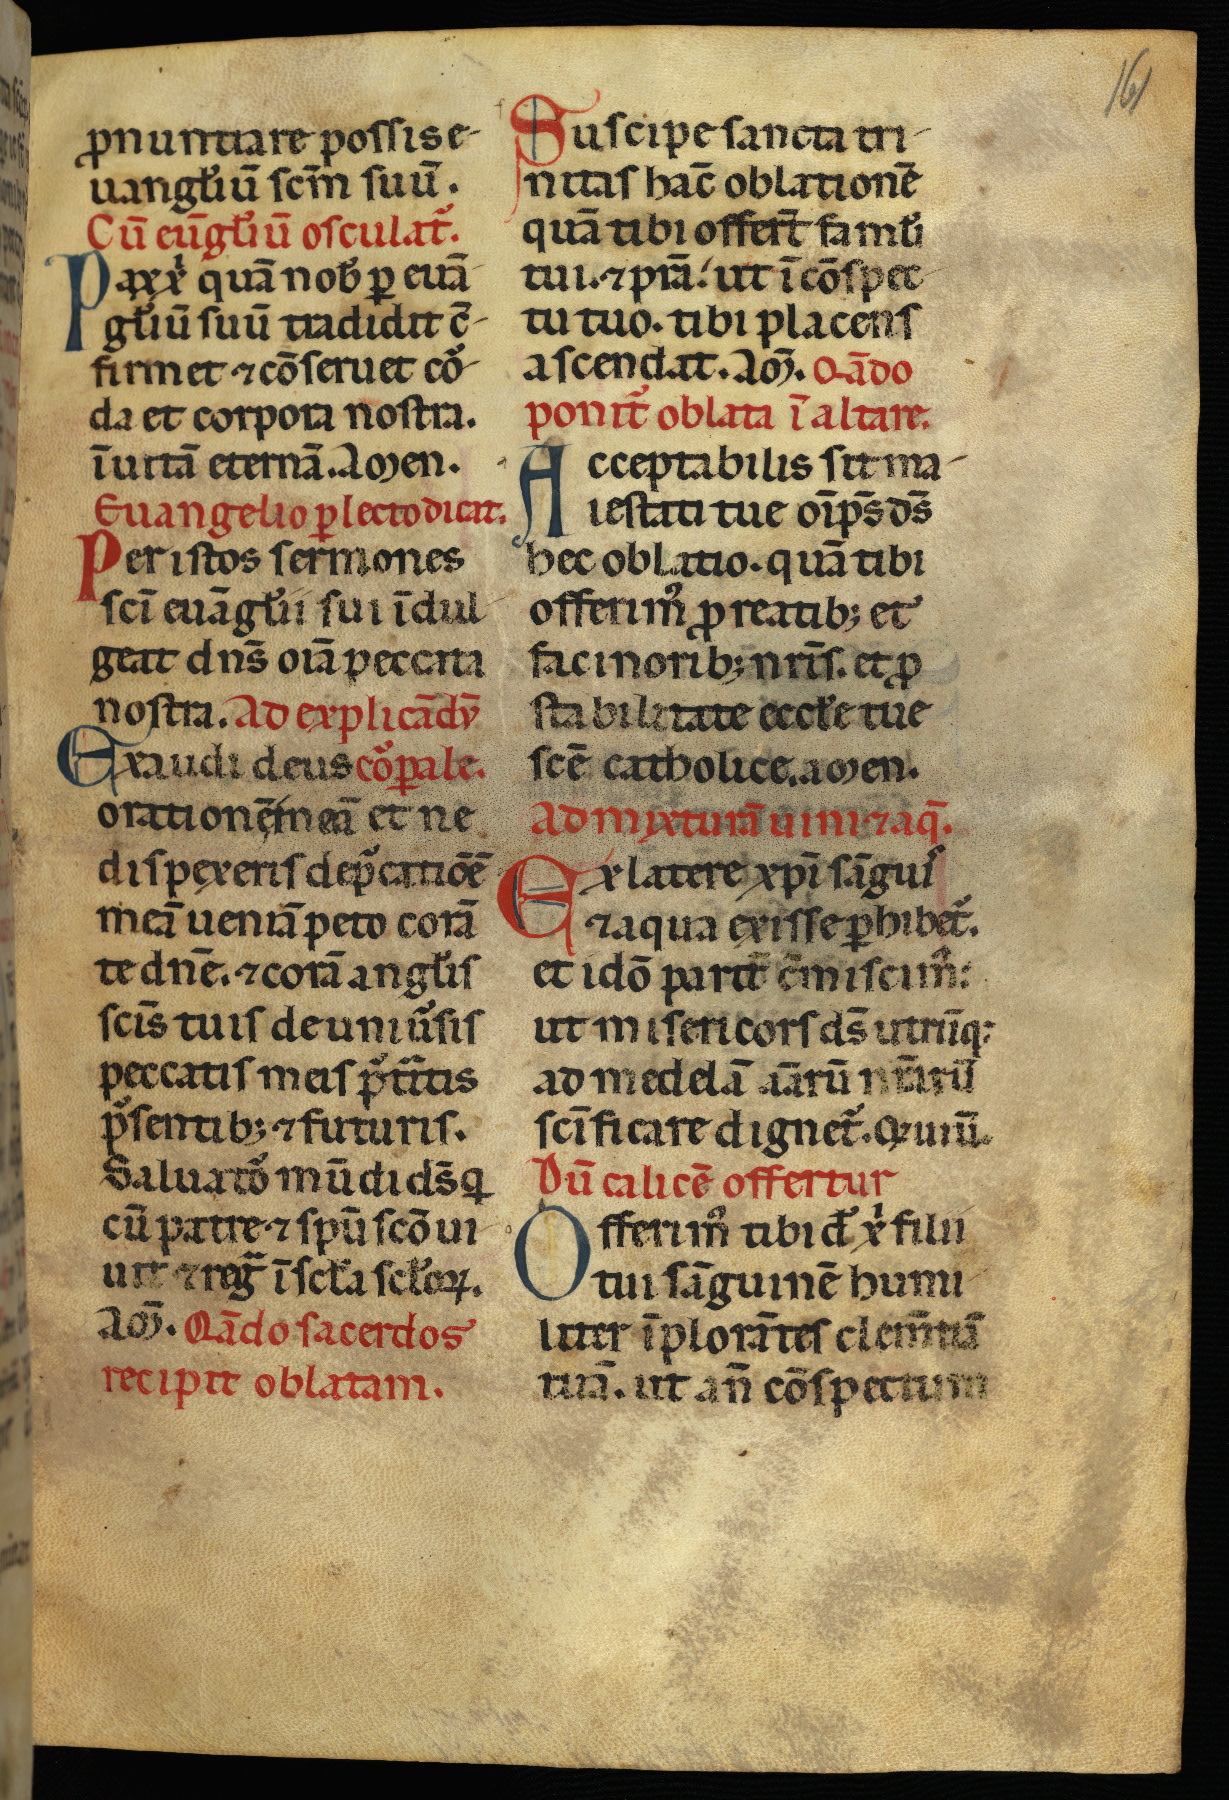 161
ꝓnuntiare possis e-
uangłiū scm̄ suū.
Cū eūgłiū osculat᷑.
Pax xp̄i quā nob̄ ꝑ euā-
głiū suū tradidit c̄-
firmet ⁊ cōseruet cor-
da et corpora nostra.
ī uitā eternā. Amen.
Euangelio ꝑlecto dicat.
Per istos sermones
sci̅ euāgłii sui īdul
geat dn̄s oīa peccata
nostra. Ad explicādū
Exaudi deus corꝑale.
orationē meā et ne
dispexeris dep̄catiōē
meā ueniā peto corā
te dn̄e. ⁊ corā angłis
scīs tuis de uniūsis
peccatis meis p̄t̄itis
p̄sentibꝫ ⁊ futuris.
Saluator mūdi ds̄ q̄
cū patre ⁊ spū scō ui-
uit ⁊ reg̅ ī scła scłoꝝ.
Am̄. Qādo sacerdos
recipit oblatam.
Suscipe sancta tri-
nitas hāc oblationē
quā tibi offert̄ famłi
tui. ⁊ pr̄a. ut ī cōspec-
tu tuo. tibi placens
ascendat. Am̄. Qādo
ponit᷑ oblata ī altare.
Acceptabilis sit ma-
iestati tue oīp̄s ds̄
hec oblatio. quā tibi
offerimꝰ ꝓ reatibꝫ et
facinoribꝫ nr̄is. et ꝓ
stabilitate eccłe tue
scē catholice. amen.
Ad mixturā uini ⁊ aq̄.
Ex latere xp̄i sāguis
⁊ aqua exisse ꝑhibet᷑.
et idō parit᷑ c̄miscimꝰ:
ut misericors ds̄ utrūqꝫ
ad medelā aīarū nr̄arū
scīficare dignet᷑. Q̄ uiuit̄.
Dū calicē offertur
Offerimꝰ tibi dn̄e xp̄i filii
tui sāguinē humi-
liter īplorātes clem̄tiā
tuā. ut an̄ cōspectum